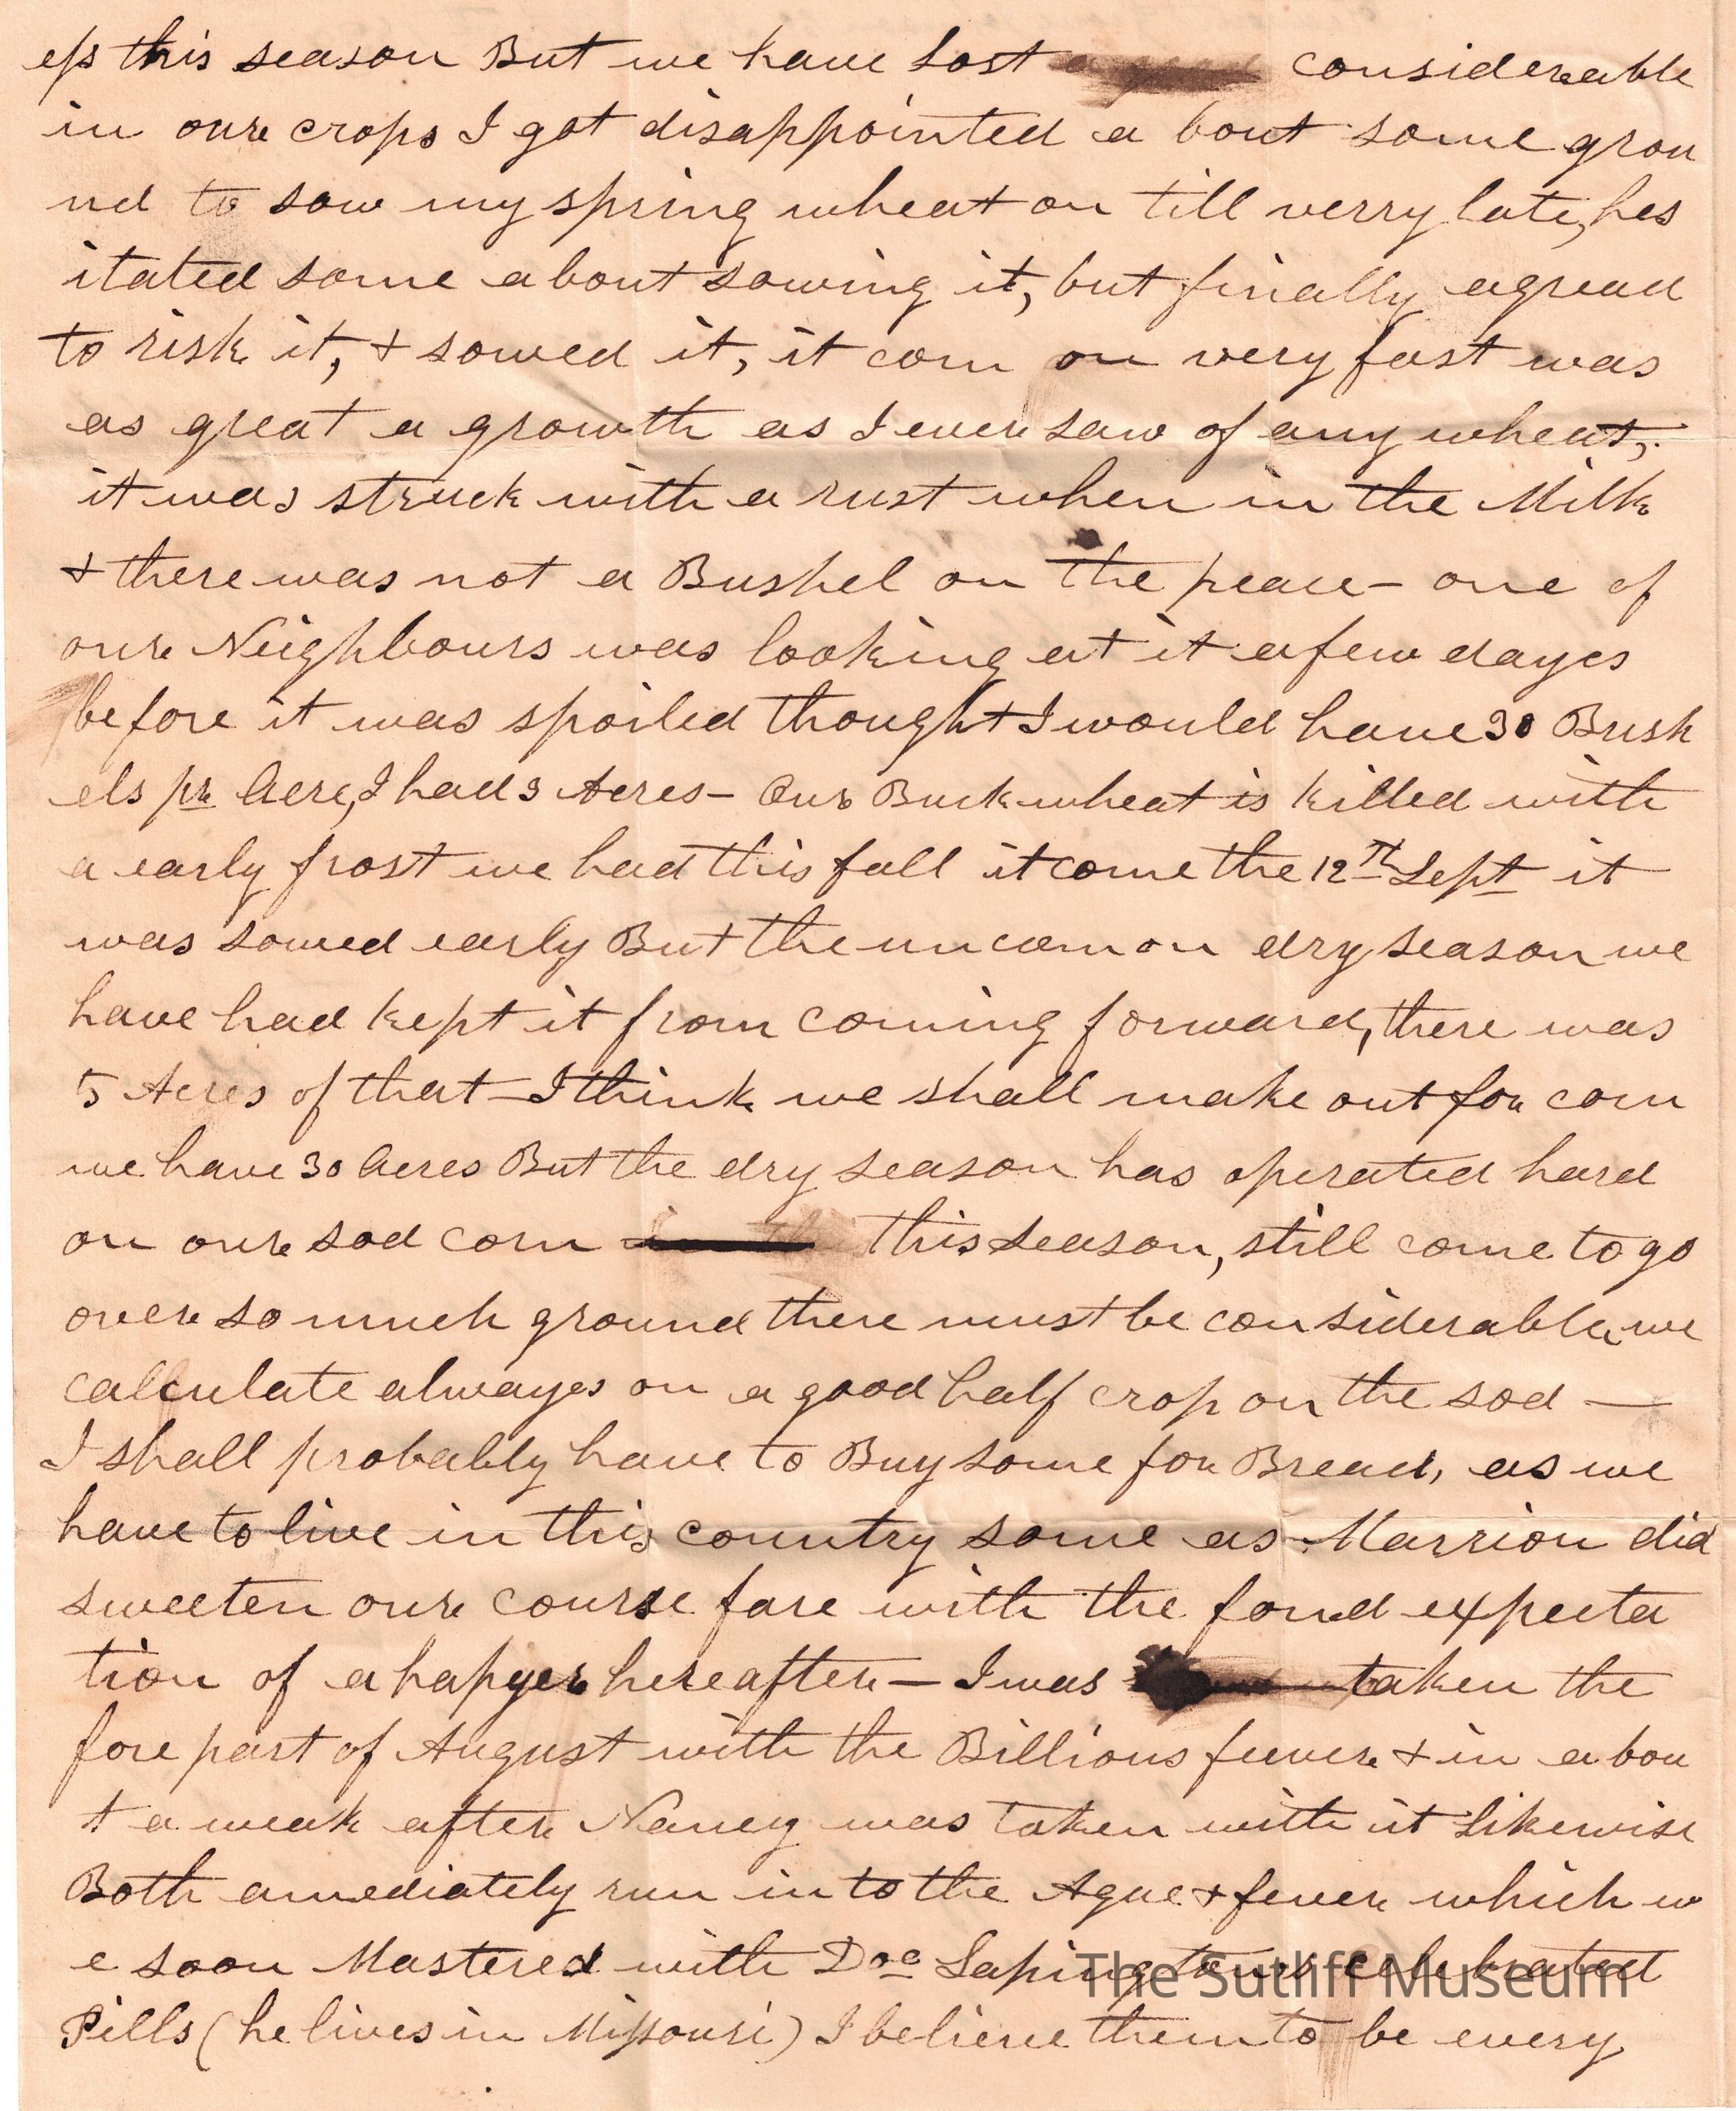 ess this season But we have Lost considereable
in oure crops I got disappointed a bout some grou
nd to sow my spring wheat on till verry late, hes
itated some about sowing it, but finally agreead
to risk it, + sowed it, it com on very fast was
as great a growth as I evere saw of any wheat,
it was struck with a rust when in the Milk
+ there was not a Bushel on the peace - one of
oure Neighbours was looking at it a few dayes
before it was spoiled thought I would have 30 Bush
els pr Acre, I had 3 Acres - Our Buckwheat is killed with
a early frost we had this fall it come the 12th Sept it
was sowed early But the uncomon dry season we
have had kept it from coming forward, there was
5 Acres of that - I think we shall make out for corn
we have 30 Acres But the dry season has operated hard
on oure sod corn this season, still come to go
over so much ground there must be considerable, we
calculate alwayes on a good half crop on the sod —
I shall probably have to Buy some for Bread, as we
have to live in this country some as Marrion did
sweeten oure course fare with the fond expecta
tion of a hapyer hereafter - I was taken the
fore part of August with the Billious feever + in a bou
t a weak after Nancy was taken with it Likewise
Both amediately run in to the Ague + fever which w
e soon Mastered with Doc Sapingtons celebrated
Pills (he lives in Missouri) I believe them to be every
The Sutliff Museum